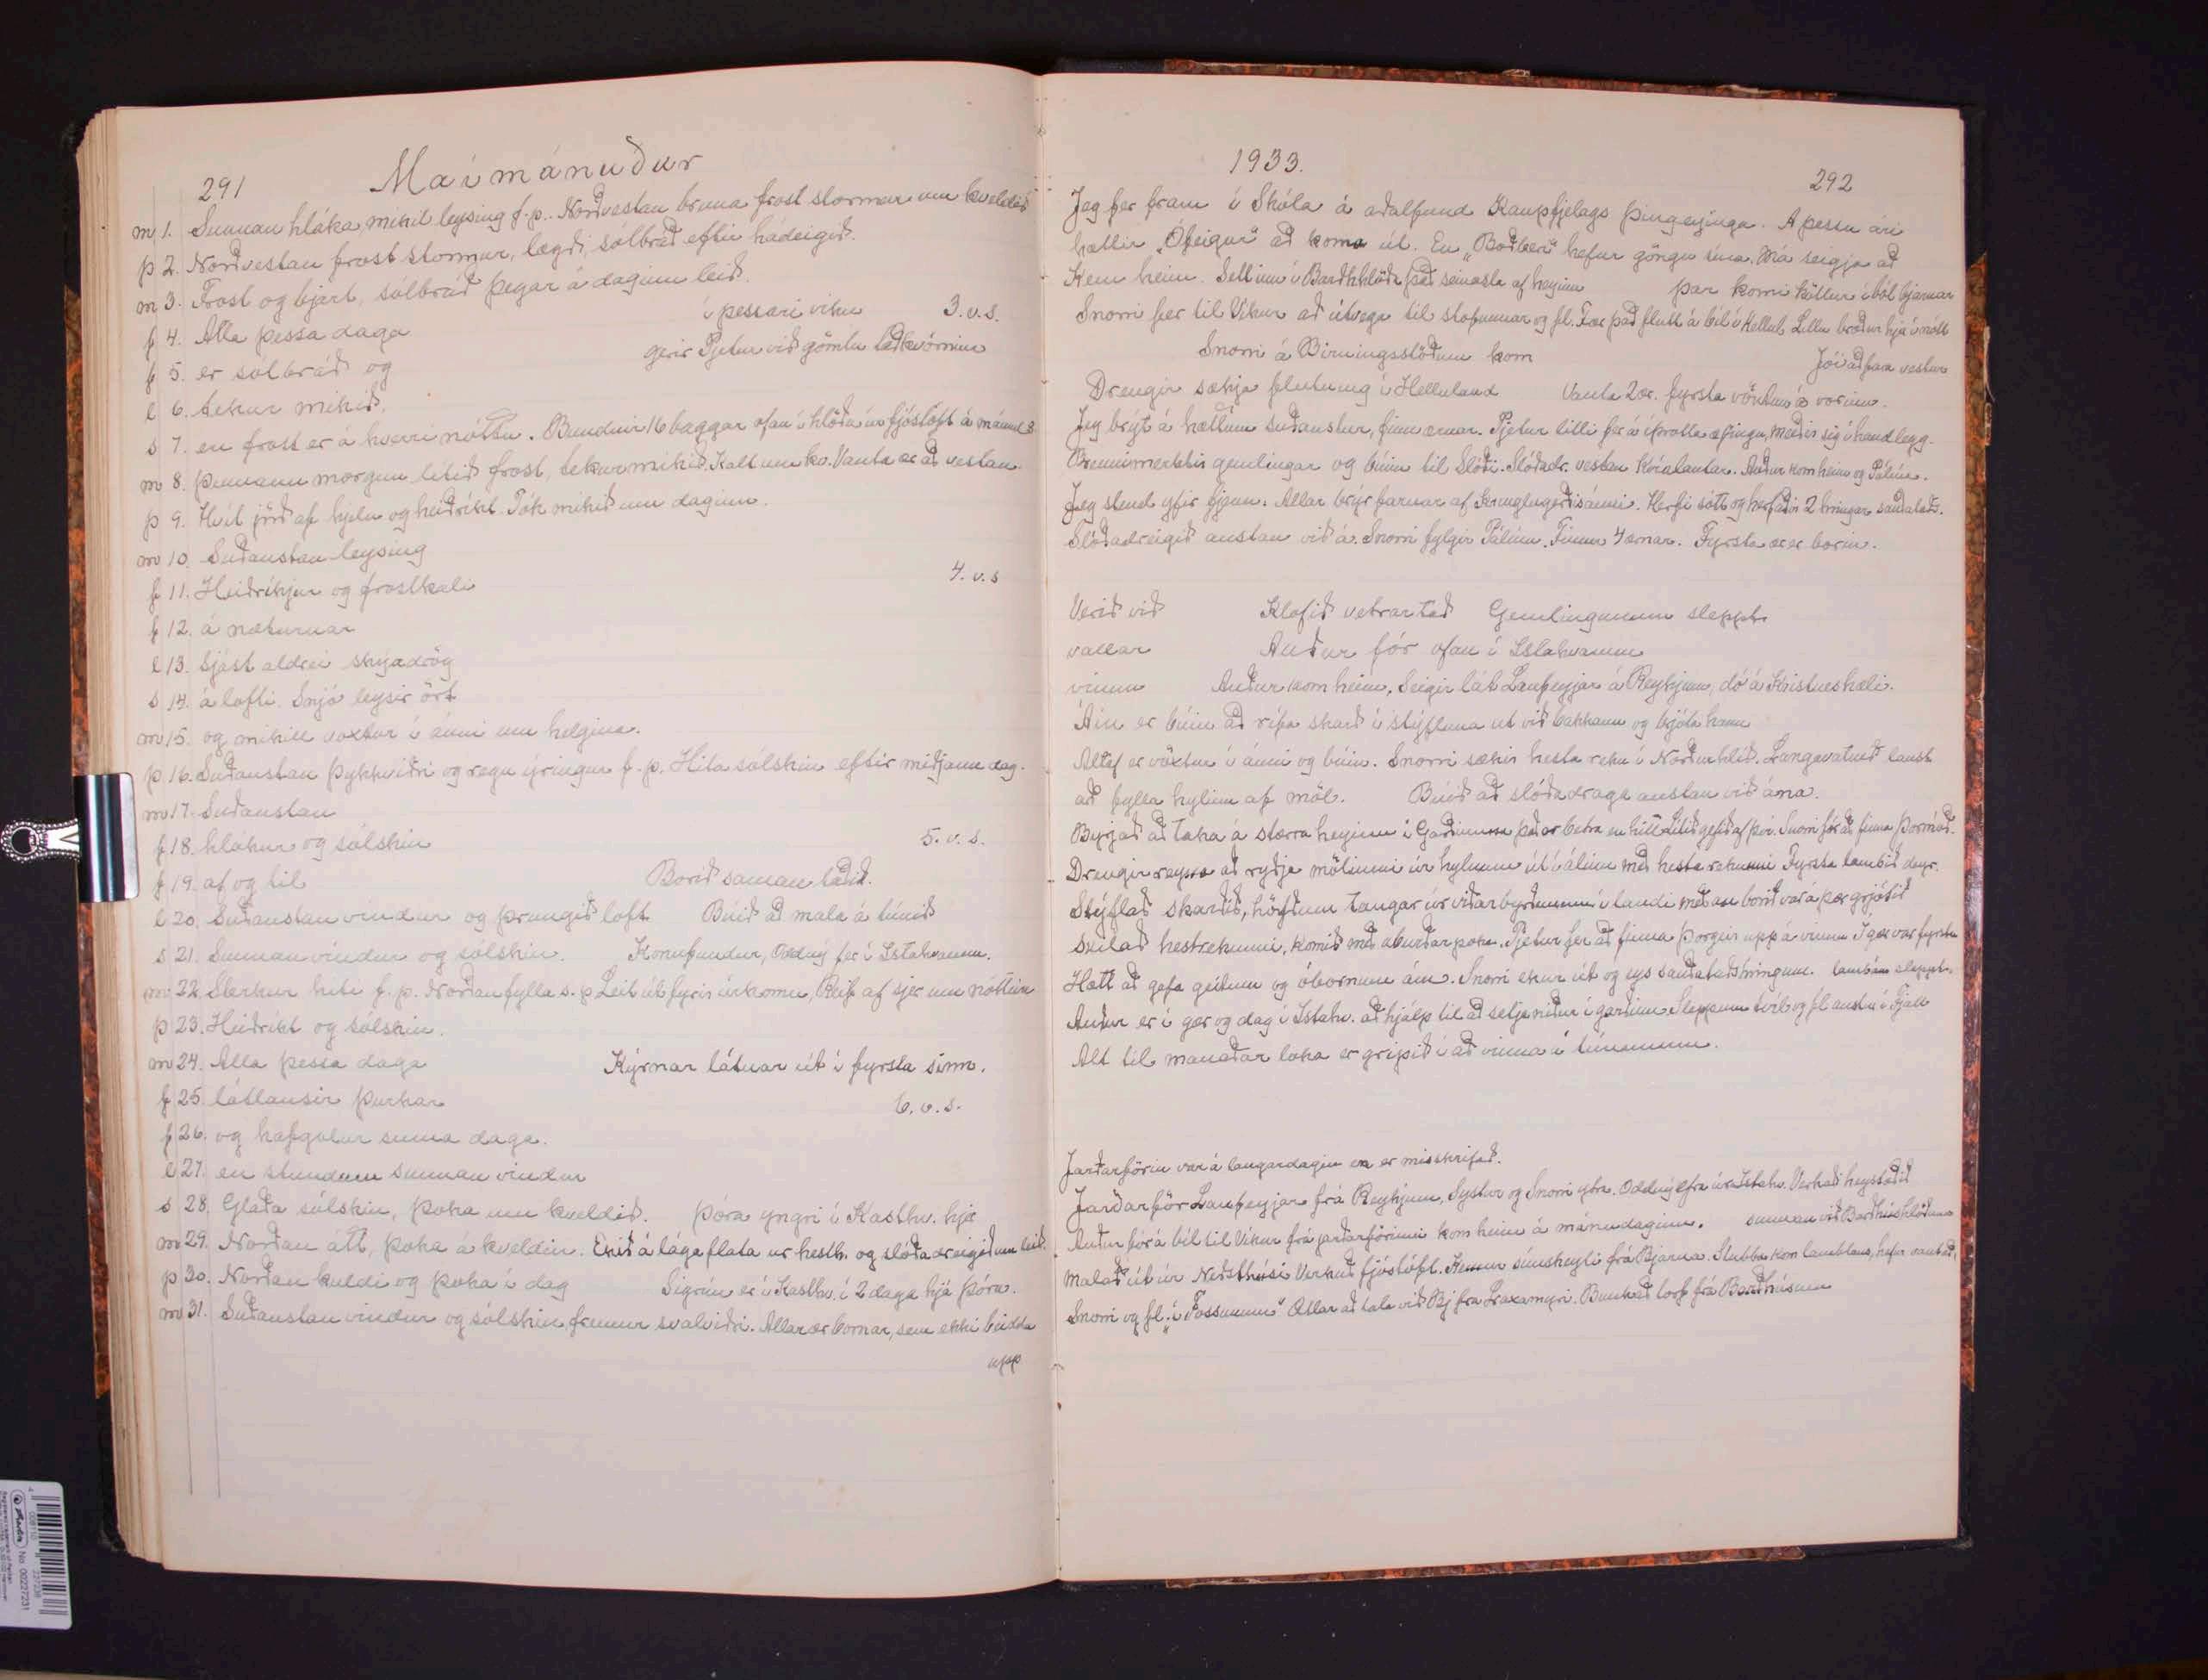 291 Maímánuður
m 1. Sunnan hláka, mikil leysing f.p. Norðvestan bruna frost stormur um kveldið
þ 2. Norðvestan frost stormur, lægði, sólbráð eftir hádeigið.
m 3. Frost og bjart, sólbráð þegar á daginn leið.
f 4. Alla þessa daga í þessari viku 3.v.s.
f 5. er sólbráð og gerir Pjetur við gömlu taðkvörnina
l 6. tekur mikið.
s 7. en frost er á hverri nóttu. Bundnir 16 baggar ofan í hlöðu úr fjóslöft á mánud 8
m 8. Þennann morgun lítið frost, tekur mikið. Kalt um kv. Vanta ær að vestan.
þ 9. Hvít jörð af hjelu og heiðríkt. Tók mikið um daginn.
m 10. Suðaustan leysing
f 11. Heiðríkjur og frostkali 4.v.s
f 12. á næturnar
l 13. Sjást aldrei skýadrög
s 14. á lofti. Snjó leysir ört
m 15. og mikill voxtur í ánni um helgina.
þ 16. Suðaustan þykkviðri og regn ýringur f.p. Hita sólskin eftir miðjann dag.
m 17. Suðaustan
f 18. hlákur og sólskin 5.v.s.
f 19. af og til Borið saman taðið.
l 20. Suðaustan vindur og þrungið loft Búið að mala á túnið
s 21. Sunnan vindur og sólskin. Konufundur, Oddný fer í Ystahvamm.
m 22. Sterkur hiti f.p. Norðan fylla s.p Leit út fyrir úrkomu, Reif af sjer um nóttina
þ 23. Heiðríkt og sólskin.
m 24. Alla þessa daga Kýrnar látnar út í fyrsta sinn.
f 25. látlausir þurkar 6.v.s.
f 26. og hafgolur suma daga.
l 27. en stundum sunnan vindur
s 28. Glaða sólskin, þoka um kveldið. Þóra yngri í Kasthv. hjá
m 29. Norðan átt, þoka á kveldin. Ekið á lága flata úr hesth. og slóðadreigið um leið.
þ 30. Norðan kuldi og þoka í dag Sigrún er í Kasthv. í 2 daga hjá Þóru.
m 31. Suðaustan vindur og sólskin fremur svalviðri. Allar ær bornar, sem ekki biðda
upp
1933. 292
Jeg fer fram í Skóla á aðalfund Kaupfjelags Þingeyinga. A þessu ári
hættir „Ófeigur" að koma út. En „Boðberi" hefur göngu sína. Má seigja að
Kem heim. Settum í Barðhhlöðu það seinasta af heyinu þar komi köttur í ból bjarnar
Snorri fer til Víkur að útvega til stofunnar og fl. Fær það flutt á bíl í Hellul. Lillu broður hjá í nótt
Snorri á Birningsstöðum kom Jói að fara vestur
Drengir sækja flutning í Helluland Vanta 2 ær. fyrsta vöntun á vorinu.
Jeg brýt á hættum suðaustur, finn ærnar. Pjetur litli fer á íþrotta æfingu, meiðir sig í handlegg.
Brennimerktir gemlingar og búin til Slóði. Slóðadr. vestan Króalautar. Auður kom heim og Pálína.
Jeg stend yfir fjenu. Allar brýr farnar af Kringlugerðisánni. Herfi sótt og herfaðir 2 hringar sauðataðs.
Slóðadreigið austan við á. Snorri fylgir Pálínu. Finnur 4 ærnar. Fyrsta ær er borin.
Verið við Klofið vetrartað Gemlingunum sleppt
vallar Auður fór ofan í Ystahvamm
vinnu Auður kom heim. Seigir lát Laufeyjar á Reykjum, dó á Kristneshæli.
Áin er búin að rífa skarð í stýfluna út við bakkann og brjóta hann
Altaf er vöxtur í ánni og búin. Snorri sækir hesta reku í Norðurhlíð. Langavatnið laust
að fylla hylinn af möl. Búið að slóðadraga austan við ána.
Byrjað að taka á stærra heyinu í Garðinum það er betra en hitt Lítið gefið af því. Snorri fór að finna Þormóð.
Drengir reyna að ryðja mölinni úr hylnum út í álinn með hesta rekunni Fyrsta lambið deyr.
Stýflað skarðið, höfðum tangar úr viðarbyrðunum í landi með an borið var á þær grjótið
Skilað hestrekunni, komið með aburðar poka. Pjetur fer að finna Þorgeir upp á vinnu I gær var fyrstu
Hætt að gefa geitum og óbornum ám. Snorri ekur út og eys sauðataðshringum. lambám sleppt.
Auður er í gær og dag í Ystahv. að hjálp til að setja niður í garðinn Sleppum tvíl og fl austur í Fjall
Alt til manaðar loka er gripið í að vinna í túnunum.
Jarðarförin var á laugardaginn en er misskrifað.
Jarðarför Laufeyjar frá Reykjum, Systur og Snorri ytra. Oddný efra úr Ystahv. Verkað heystæðið
Auður fór á bíl til Víkur frá jarðarförinni kom heim á mánudaginn. sunnan við Barðhúshlöðuna
Malað út úr Neðsthúsi Verkað fjóslöft. Kemur símskeyti frá Bjarna. Stubba kom lamblaus, hefur vantað,
Snorri og fl. í „Fossunum" Ætlar að tala við Bj frá Laxamyri. Bunkað torf frá Barðhúsum